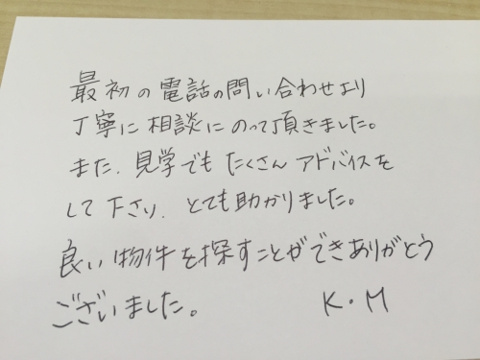 最初の電話の問い合わせより
丁寧に相談にのって頂きました。
また、見学でもたくさんアドバイスを
して下さり、とても助かりました。
良い物件を探すことができありがとう
ございました。 K.M